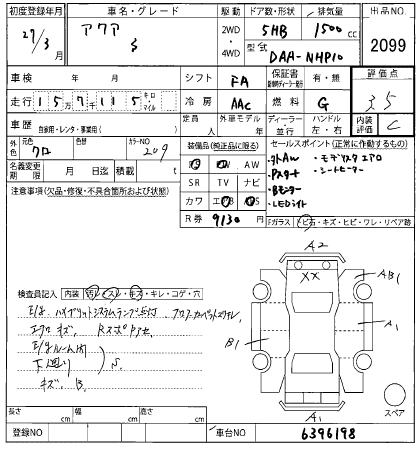 初度登録年月 車名・グレード 駆動 ドア数・形状 排気量 出品NO
27/3月 アクア S 2WD・4WD 5HB 1500cc 2099
型式 DAA-NHP10
車検 年 月 シフト FA 保証書 有・無 評価点
走行 15万7千115 キロ・マイル 冷房 AAC 燃料 G 3.5
車歴 自家用・レンタ・事業用( ) 定員 人 外車モデル 年 ディーラー 並行 ハンドル 左・右 内装評価 C
外色 元色 クロ 色替 カラーNO 209
装備品(純正品に限る)
PS PW AW
SR TV ナビ
カワ エアB ABS
R券 9130円
セールスポイント(正常に作動するもの)
・社外AW ・モデリスタエアロ
・Pスタート ・シートヒーター
・Bモニター
・LEDライト
名義変更期限 月 日 積載 t
注意事項(欠品・修復・不具合箇所および状態)
Fガラス トビ石・キズ・ヒビ・ワレ・リペア跡
検査員記入 内装 汚レ・スレ・キズ・キレ・コゲ・穴
E/g ハイブリットシステムランプ点灯
エアロキズ
E/gルーム内
下廻り S.
キズ、B.
A2
XX
AB1
A1
B1
A1
スペア
長さ cm 幅 cm 高さ cm
登録NO 車台NO 6396198